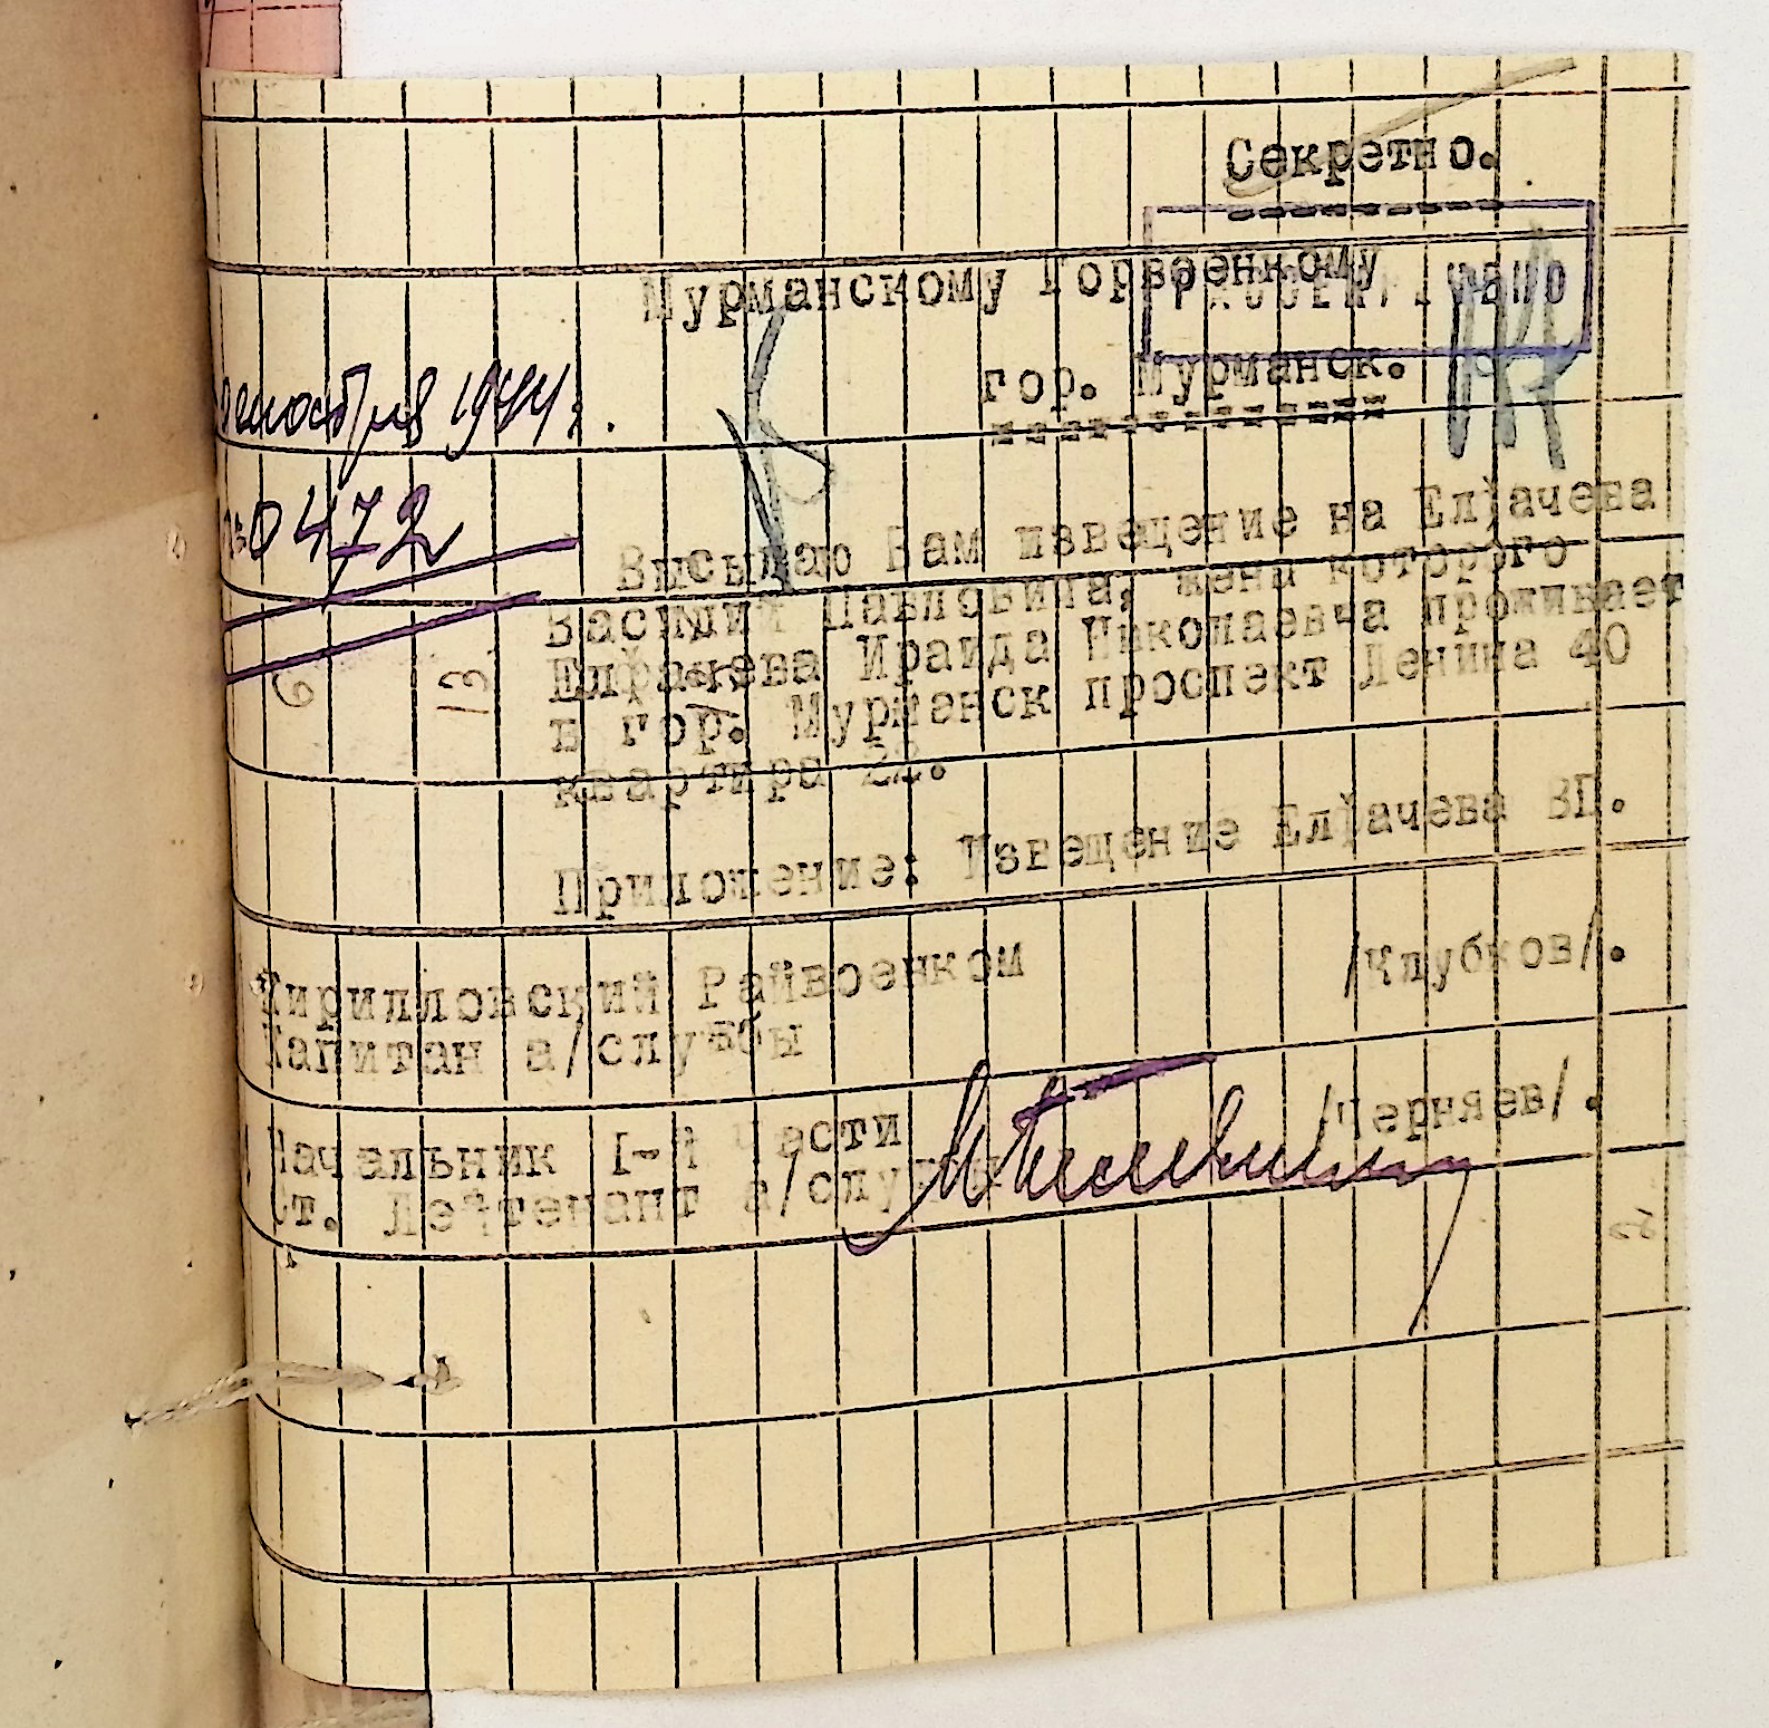 Секретно.
Мурманскому Горвоенкому
РАССЕКРЕЧЕНО
гор. Мурманск.
декабря 1944 г.
№ 0472
Высылаю Вам извещение на Елфачева
Василий Павловича, жена которого
Елфачева Ираида Николаевча проживает
в гор. Мурманск проспект Ленина 40
квартира 22.
Приложение: Извещение Елфачева ВП.
Кирилловский Райвоенком
Капитан а/службы
/Клубков/.
Начальник I-й Части
Ст. Лейтенант а/службы
/Черняев/.